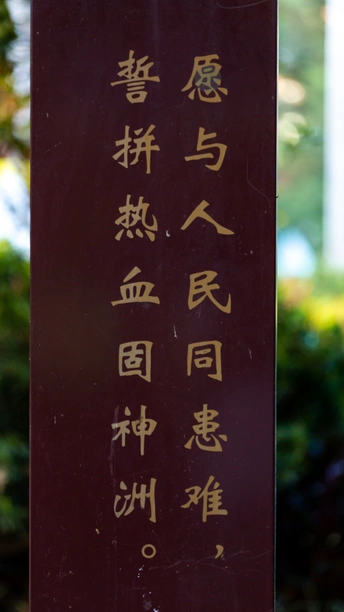 愿与人民同患难，
誓拼热血固神洲。